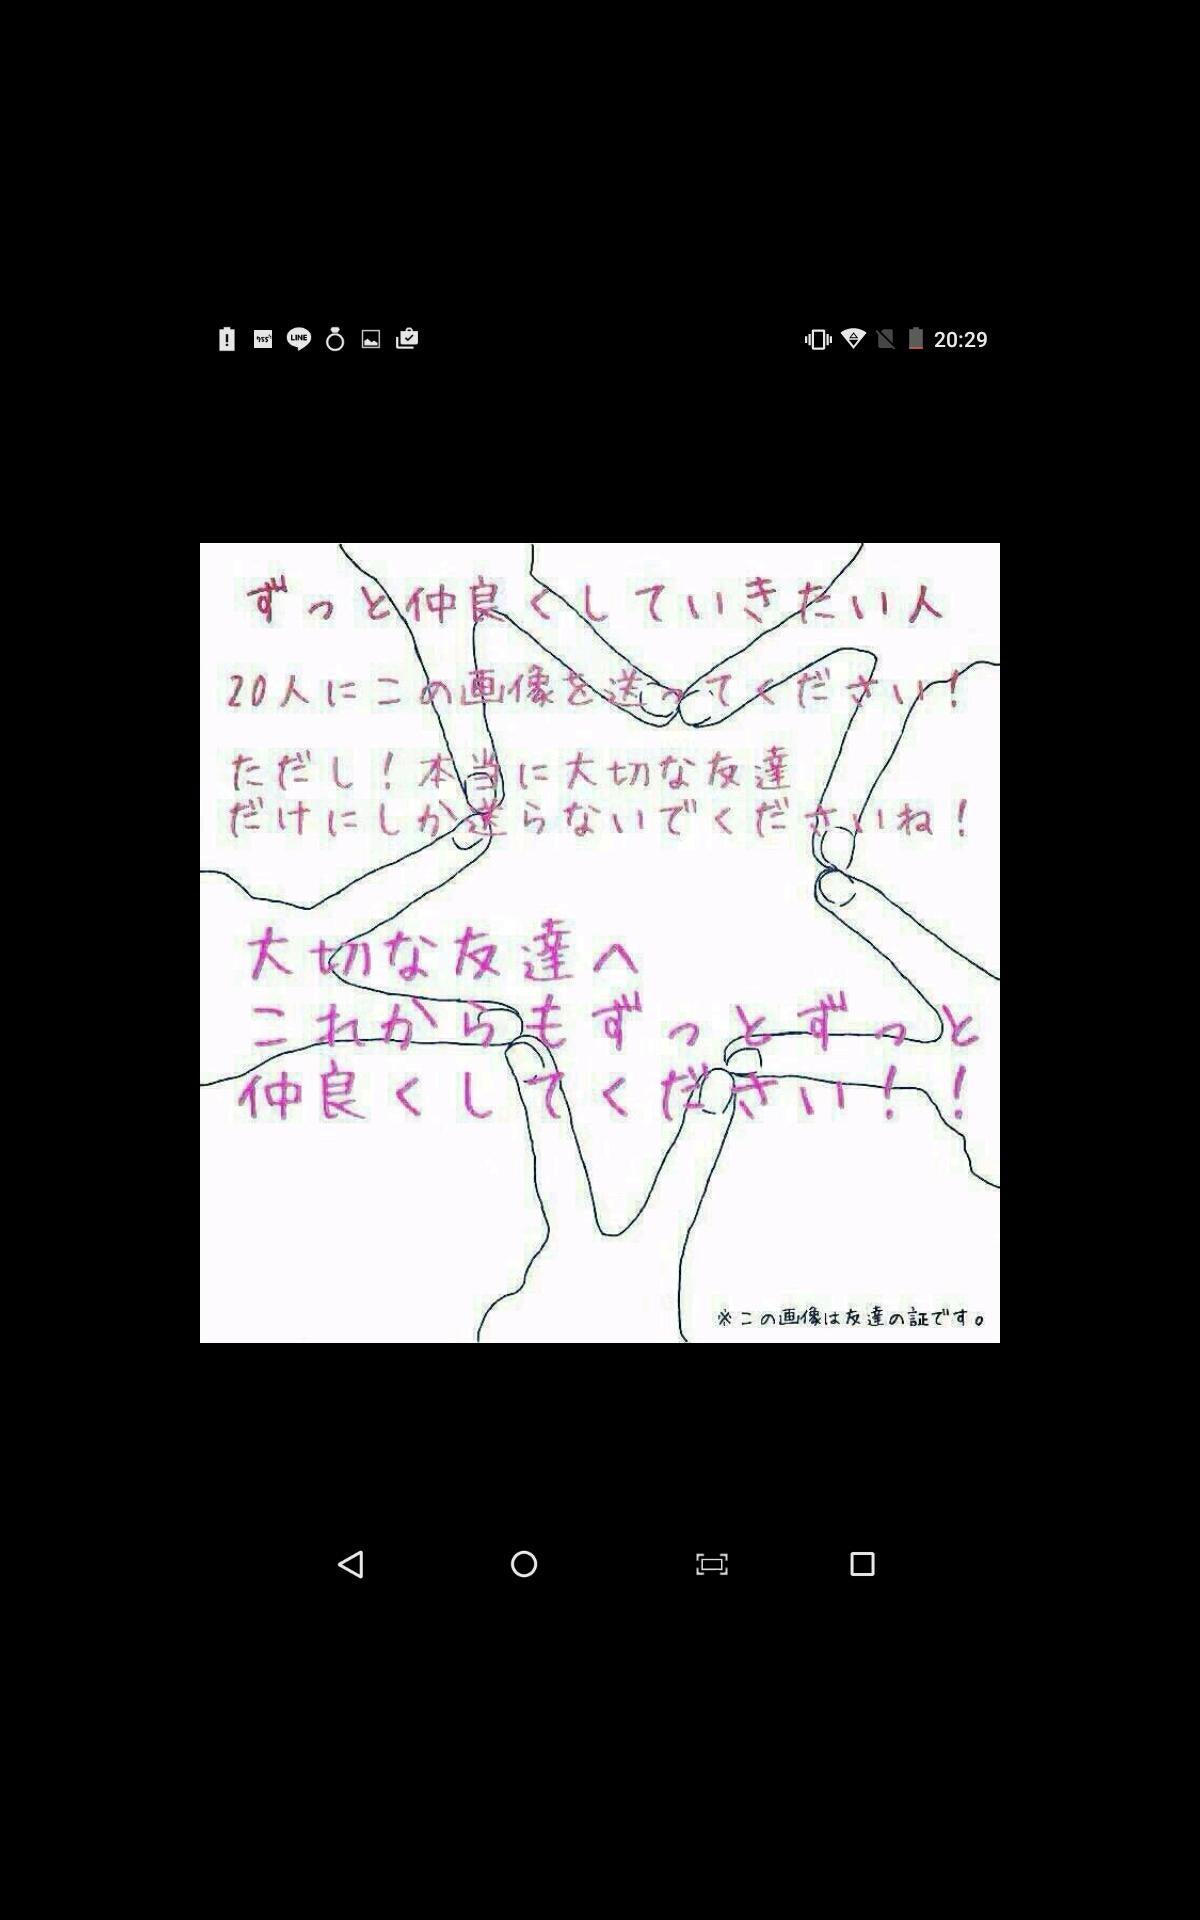 LINE
20:29
ずっと仲良くしていきたい人
20人にこの画像を送ってください!
ただし!本当に大切な友達
だけにしか送らないでくださいね!
大切な友達へ
これからもずっとずっと
仲良くしてください!!
※この画像は友達の証です。